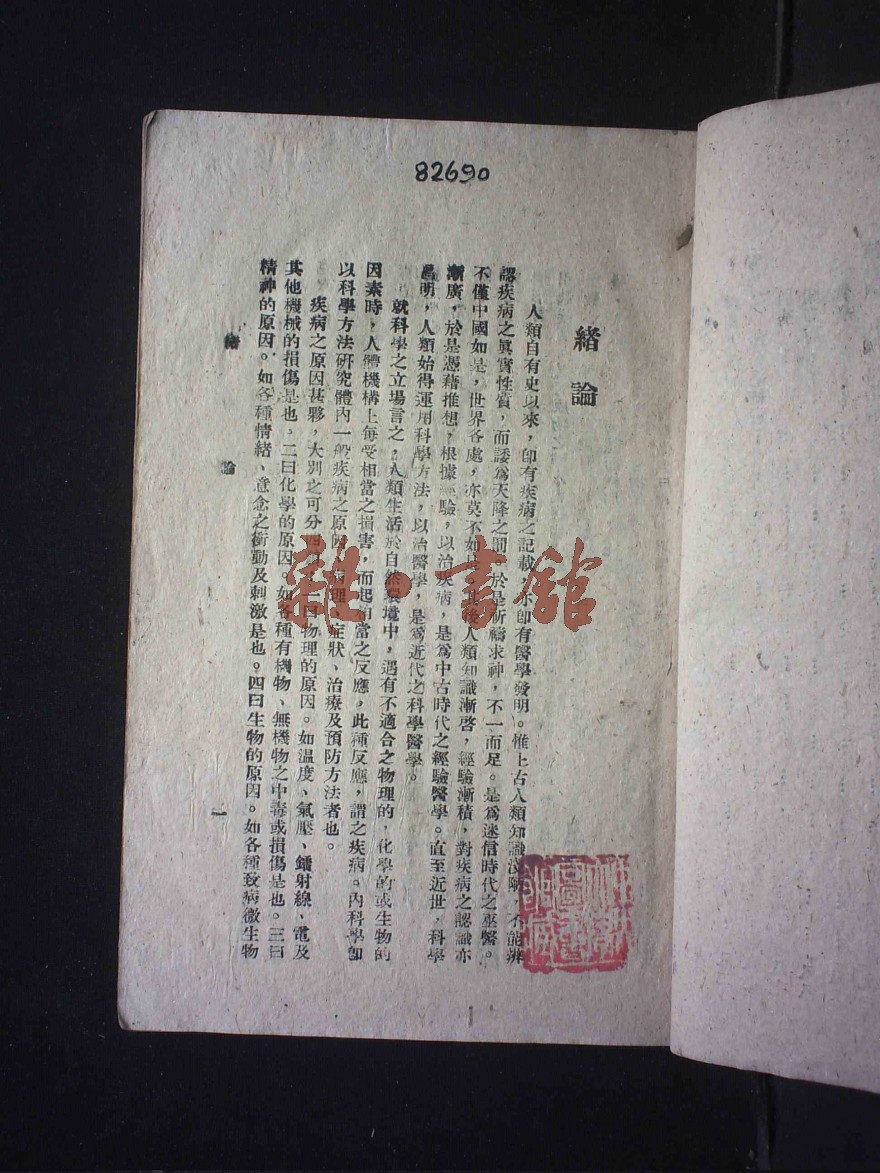 82690
緒論
人類自有史以來，卽有疾病之記載，亦卽有醫學發明。惟上古人類知識淺陋，不能辨
認疾病之眞實性質，而諉爲天降之罰，於是祈禱求神，不一而足。是爲迷信時代之巫醫。
不僅中國如是，世界各處，亦莫不如是。其後人類知識漸啓，經驗漸積，對疾病之認識亦
漸廣，於是憑藉推想，根據經驗，以治疾病，是爲中古時代之經驗醫學。直至近世，科學
昌明，人類始得運用科學方法，以治醫學，是爲近代之科學醫學。
就科學之立場言之，人類生活於自然環境中，遇有不適合之物理的，化學的或生物的
因素時，人體機構上每受相當之損害，而起相當之反應，此種反應，謂之疾病。內科學卽
以科學方法研究體內一般疾病之原因、病理、症狀、治療及預防方法者也。
疾病之原因甚夥，大別之可分四：一曰物理的原因。如溫度、氣壓、鐳射線、電及
其他機械的損傷是也。二曰化學的原因。如各種有機物、無機物之中毒或損傷是也。三曰
精神的原因。如各種情緒、意念之衝動及刺激是也。四曰生物的原因。如各種致病微生物
緒論
一
龍山書館